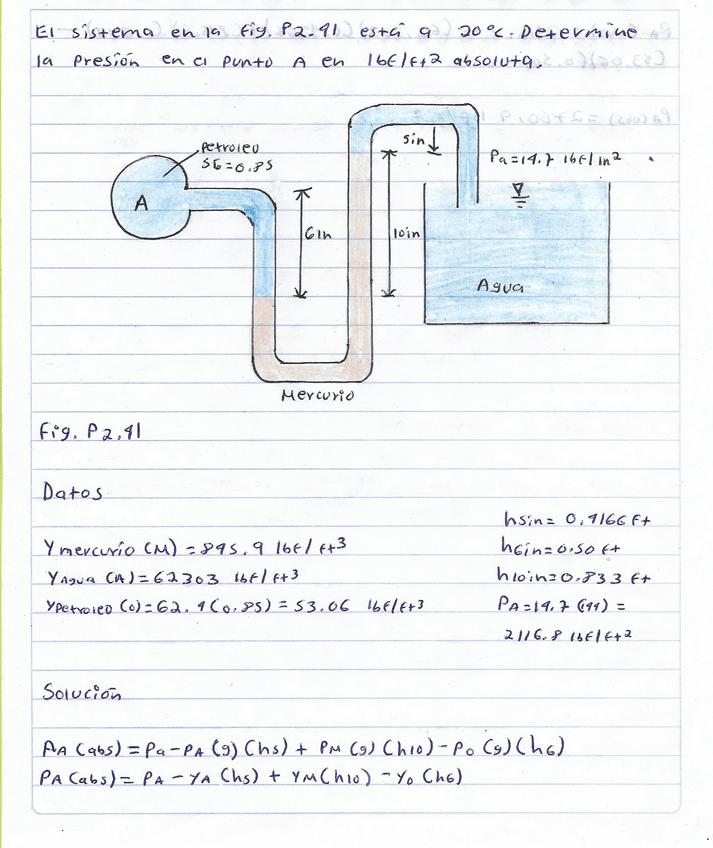 El sistema en la Fig. P2.41 está a 20°c. Determine
la Presión en el Punto A en lbf/ft2 absoluta.
Petroleo
SG=0.85
A
5in
Pa=14.7 lbf/in2
6in
10in
Agua
Mercurio
Fig. P2.41
Datos
h5in= 0.4166 ft
γmercurio (M) = 845.9 lbf/ft3
h6in=0.50 ft
γAgua (A) = 62303 lbf/ft3
h10in=0.833 ft
γPetroleo (o)=62.4(0.85) = 53.06 lbf/ft3
PA=14.7 (144) =
2116.8 lbf/ft2
Solución
PA (abs) = Pa-PA (g) (h5) + PM (g) (h10) - Po (g) (h6)
PA (abs) = PA - γA (h5) + γM(h10) - γo (h6)